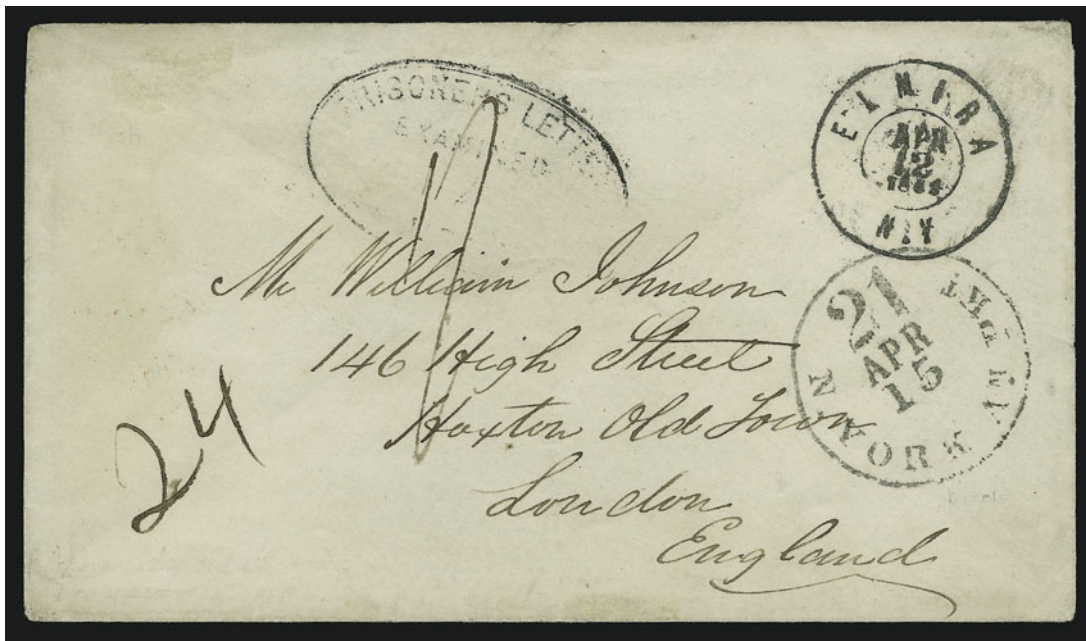 PRISONER'S LETTER
EXAMINED
ELMIRA
APR
12
N.Y.
21
APR
15
N. YORK AM. PKT
Mr William Johnson
146 High Street
Hoxton Old Town
London
England
24